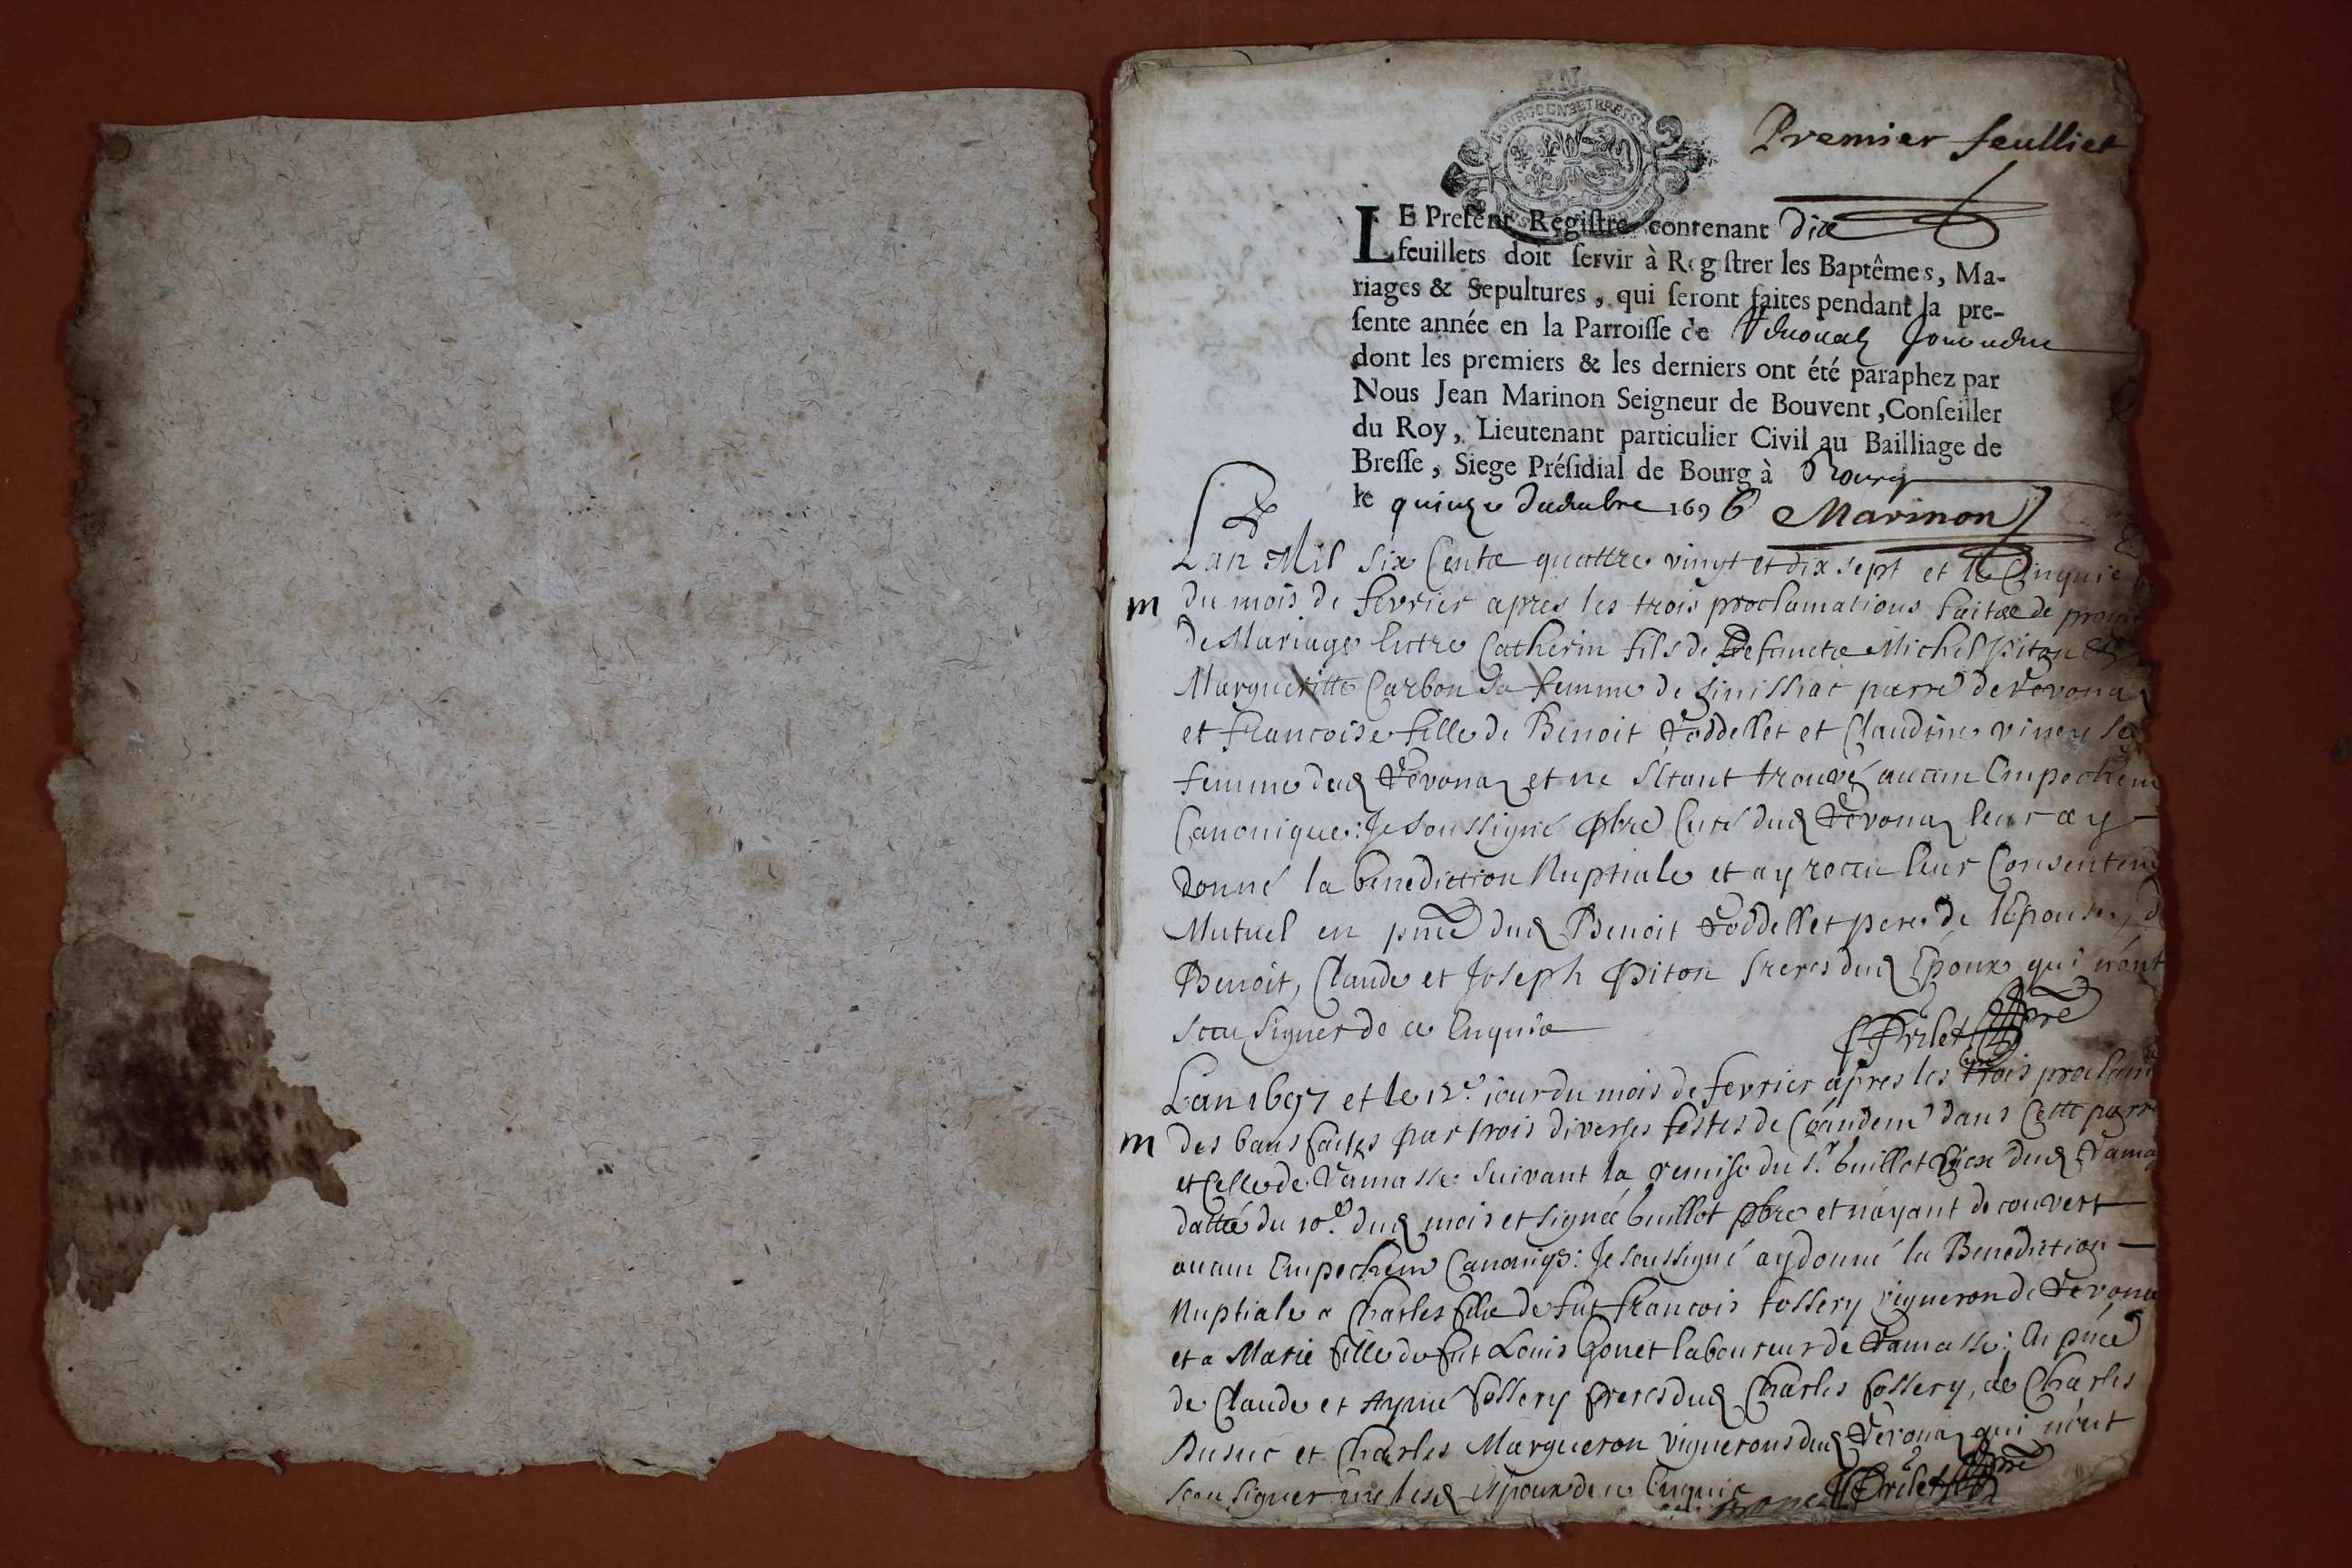 BOURGOGNE ET BRESSE
Premier feulliet
LE Preſent Regiſtre contenant dix
feuillets doit ſervir à Reg ſtrer les Baptêmes, Ma-
riages & Sepultures, qui ſeront faites pendant la pre-
ſente année en la Parroiſſe de
dont les premiers & les derniers ont été paraphez par
Nous Jean Marinon Seigneur de Bouvent, Conſeiller
du Roy, Lieutenant particulier Civil au Bailliage de
Breſſe, Siege Préſidial de Bourg à Bourg
le quinze decembre 1696 Marinon
Lan Mil six Cents quattre vingt et dix sept et le Cinquie
m du mois de fevrier apres les trois proclamations faites de prom
de Mariage Entre Catherin fils de defuncts Michel Piton Et
Margueritte Carbon sa femme de parre de Vevona
et francoise fille de Benoit Voddellet et Claudine sa
femme dud Vevona et ne s'étant trouvé aucun Empechem
Canonique: Je soussigné pbre Curé dud Vevona leur ay
donné la benediction Nuptiale et ay receu leur Consentem
Mutuel en pnce dud Benoit Voddellet pere de l'Epouse, d
Benoit, Claude et Joseph Piton freres dud Epoux qui n'ont
sceu signer de ce Enquis
Prilet pre
Lan 1697 et le 12e. jour du mois de fevrier apres les trois proclam
m des bans faites par trois diverses festes de Commandem dans Cette parr
et Celle de Vamasse suivant la remise du Sr. buillot Vicre dud Vama
dattée du 10e. dud mois et signée buillot pbre et n'ayant decouvert
aucun Empechem Canoniq: Je soussigné ay donné la Benediction
Nuptiale a Charles fils de fut francois fossery vigneron de Vevona
et a Marie fille de fut Louis Gonet laboureur de Vamasse: En pnce
de Claude et Aymé fossery freres dud Charles fossery, de Charles
Busuc et Charles Margueron vignerons dud Vevona qui n'ont
sceu signer lesd Epoux de ce Enquis Prilet pre